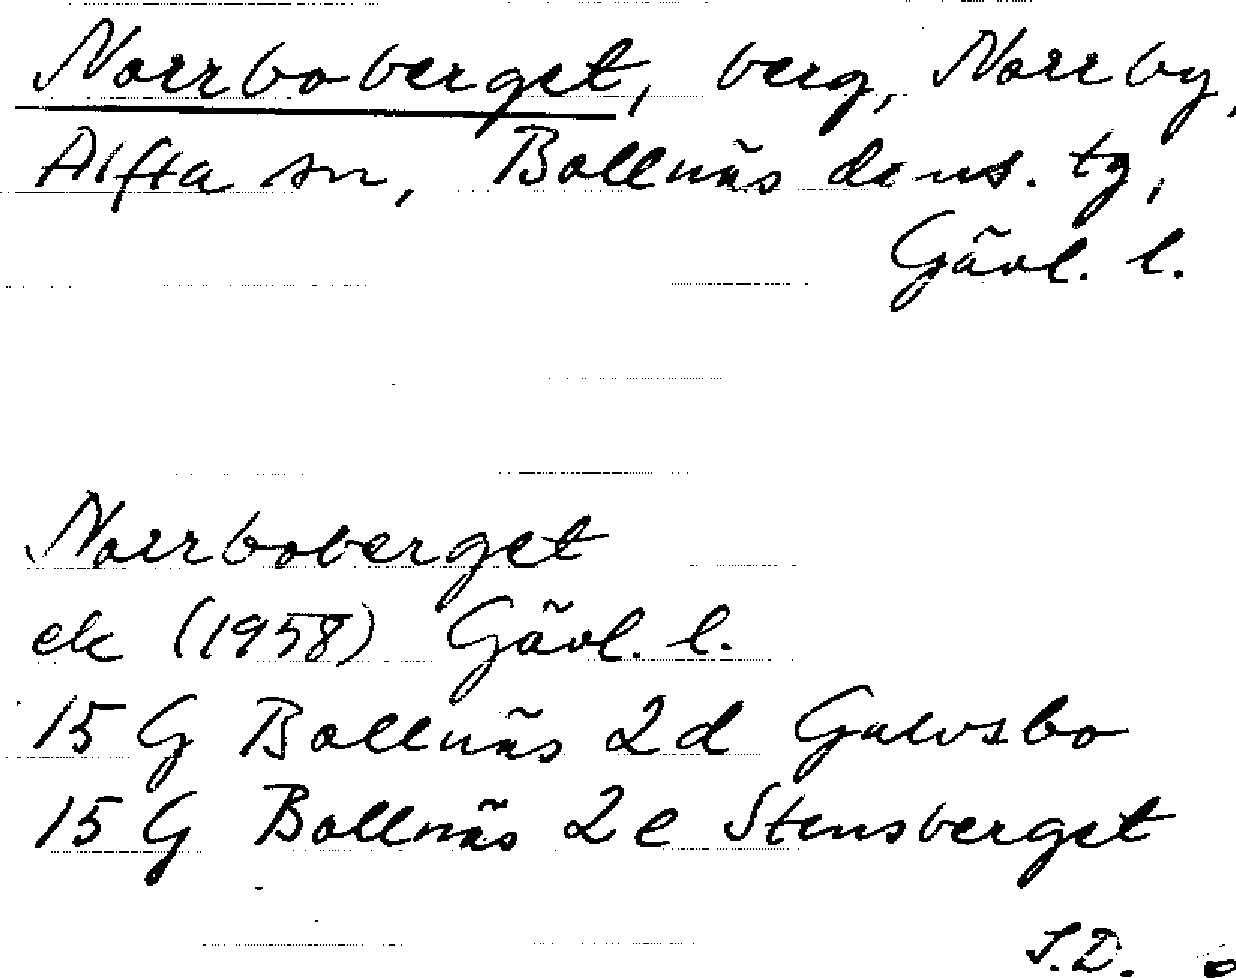 Norrboberget, berg, Norrby,
Alfta sn, Bollnäs doms. tg,
Gävl. l.
Norrboberget
ek (1958) Gävl. l.
15 G Bollnäs 2d Gulvsbo
15 G Bollnäs 2e Stensberget
S.D.